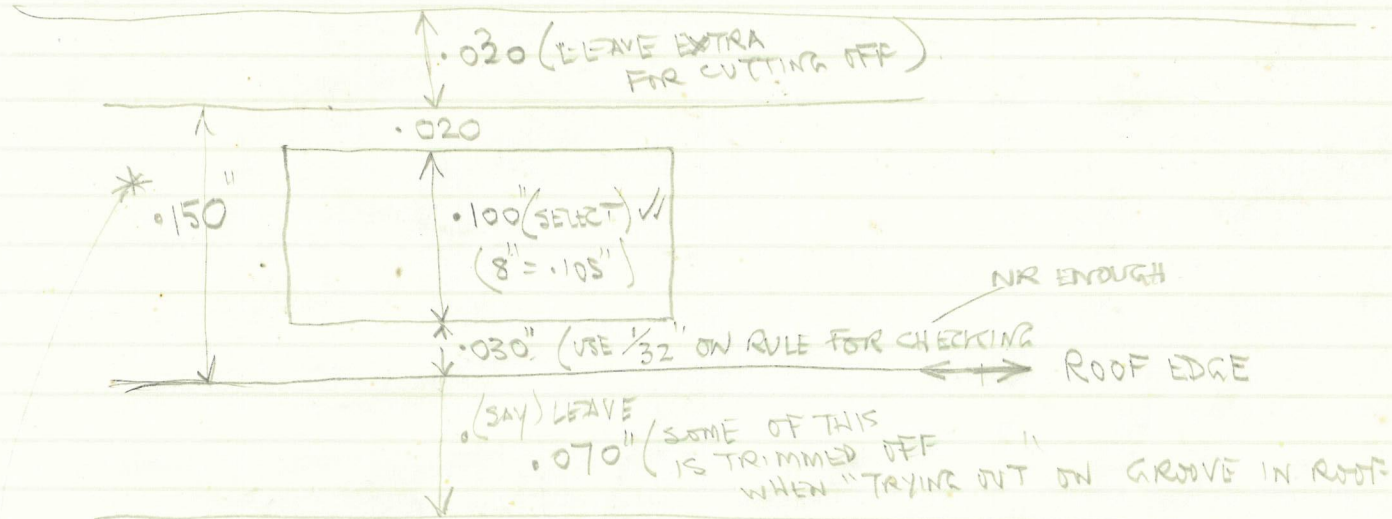 .030 (LEAVE EXTRA
FOR CUTTING OFF)
.020
*
.150"
.100"(SELECT) ✓✓
(8" = .105")
NR ENOUGH
.030" (USE 1/32" ON RULE FOR CHECKING
ROOF EDGE
.(SAY) LEAVE
.070" (SOME OF THIS
IS TRIMMED OFF
WHEN "TRYING OUT" ON GROOVE IN ROOF